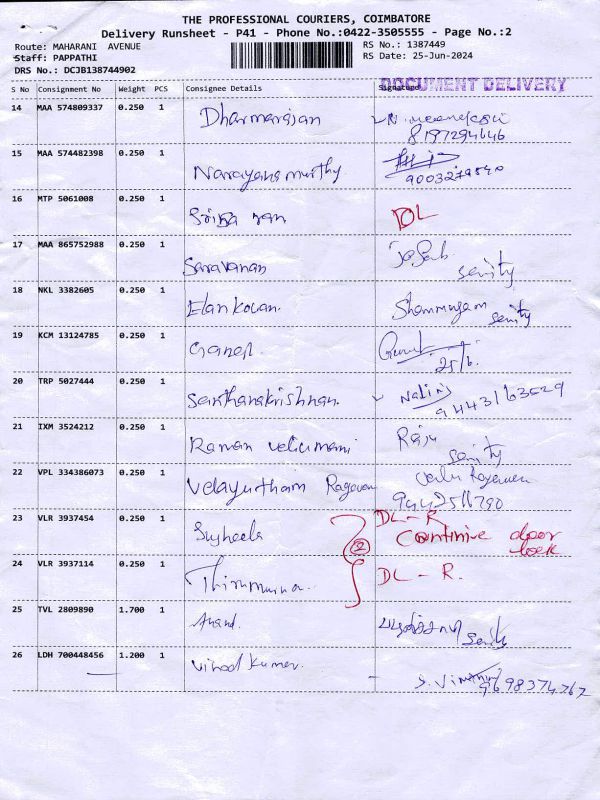 THE PROFESSIONAL COURIERS, COIMBATORE
Delivery Runsheet - P41 - Phone No.:0422-3505555 - Page No.:2
Route: MAHARANI AVENUE RS No.: 1387449
Staff: PAPPATHI RS Date: 25-Jun-2024
DRS No.: DCJB138744902
DOCUMENT DELIVERY
S No Consignment No Weight PCS Consignee Details Signature
14 MAA 574809337 0.250 1 Dharmarajan
8197294646
15 MAA 574482398 0.250 1 Narayanamurthy
9003279840
16 MTP 5061008 0.250 1 DL
17 MAA 865752988 0.250 1 Saravanan
senity
18 NKL 3382605 0.250 1 Elankovan. Shanmugam
senity
19 KCM 13124785 0.250 1 Ganesh
25/6.
20 TRP 5027444 0.250 1 Santhanakrishnan. Nalini
9443163529
21 IXM 3524212 0.250 1 Raman Velicumani Raju
senity
22 VPL 334386073 0.250 1 Velayutham Ragavan
9442511790
23 VLR 3937454 0.250 1 Susheela DL - R
Continive door
lock
②
24 VLR 3937114 0.250 1 DL - R.
25 TVL 2809890 1.700 1 Anand.
26 LDH 700448456 1.200 1 Vinod kumar.
9698374767